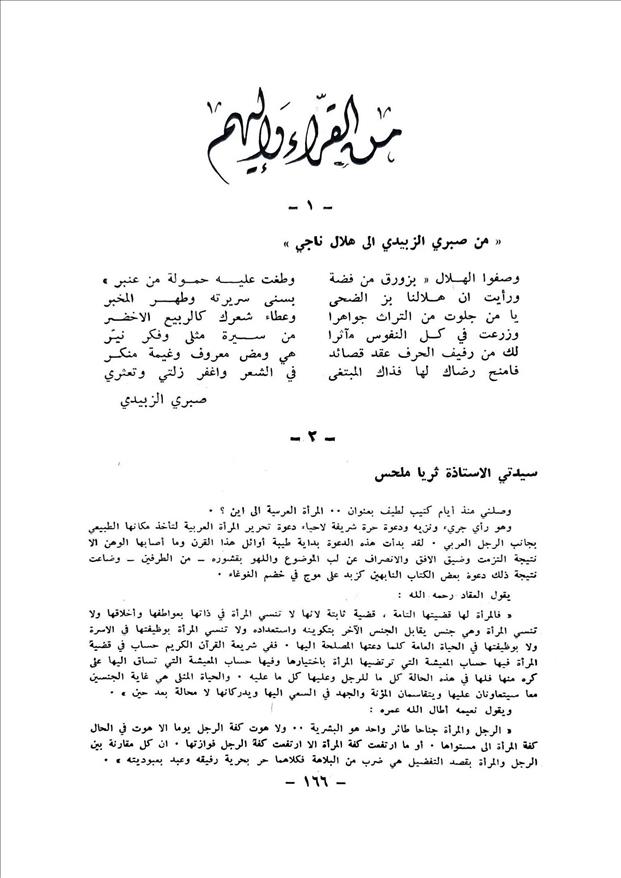 من القرّاء وإليهم
- ١ -
« من صبري الزبيدي الى هلال ناجي »
وصفوا الهلال « بزورق من فضة وطغت عليه حمولة من عنبر »
ورأيت ان هلالنا بز الضحى بسنى سريرته وطهر المخبر
يا من جلوت من التراث جواهرا وعطاء شعرك كالربيع الاخضر
وزرعت في كل النفوس مآثرا من سيرة مثلى وفكر نيّر
لك من رفيف الحرف عقد قصائد هي ومض معروف وغيمة منكر
فامنح رضاك لها فذاك المبتغى في الشعر واغفر زلتي وتعثري
صبري الزبيدي
- ٢ -
سيدتي الاستاذة ثريا ملحس
وصلني منذ أيام كتيب لطيف بعنوان ٠٠ المرأة العربية الى اين ؟ ٠
وهو رأي جريء ونزيه ودعوة حرة شريفة لاحياء دعوة تحرير المرأة العربية لتأخذ مكانها الطبيعي
بجانب الرجل العربي ٠ لقد بدأت هذه الدعوة بداية طيبة أوائل هذا القرن وما أصابها الوهن الا
نتيجة التزمت وضيق الافق والانصراف عن لب الموضوع واللهو بقشوره ــ من الطرفين ــ وضاعت
نتيجة ذلك دعوة بعض الكتاب النابهين كزبد على موج في خضم الغوغاء ٠
يقول العقاد رحمه الله :
« فالمرأة لها قضيتها التامة ، قضية ثابتة لانها لا تنسي المرأة في ذاتها بعواطفها وأخلاقها ولا
تنسي المرأة وهي جنس يقابل الجنس الآخر بتكوينه واستعداده ولا تنسي المرأة بوظيفتها في الاسرة
ولا بوظيفتها في الحياة العامة كلما دعتها المصلحة اليها ٠ ففي شريعة القرآن الكريم حساب في قضية
المرأة فيها حساب المعيشة التي ترتضيها المرأة باختيارها وفيها حساب المعيشة التي تساق اليها على
كره منها فلها في هذه الحالة كل ما للرجل وعليها كل ما عليه ٠ والحياة المثلى هي غاية الجنسين
معا سيتعاونان عليها ويتقاسمان المؤنة والجهد في السعي اليها ويدركانها لا محالة بعد حين » ٠
ويقول نعيمه أطال الله عمره :
« الرجل والمرأة جناحا طائر واحد هو البشرية ٠٠ ولا هوت كفة الرجل يوما الا هوت في الحال
كفة المرأة الى مستواها ٠ أو ما ارتفعت كفة المرأة الا ارتفعت كفة الرجل فوازتها ٠ ان كل مقارنة بين
الرجل والمرأة بقصد التفضيل هي ضرب من البلاهة فكلاهما حر بحرية رفيقه وعبد بعبوديته » ٠
- ١٦٦ -